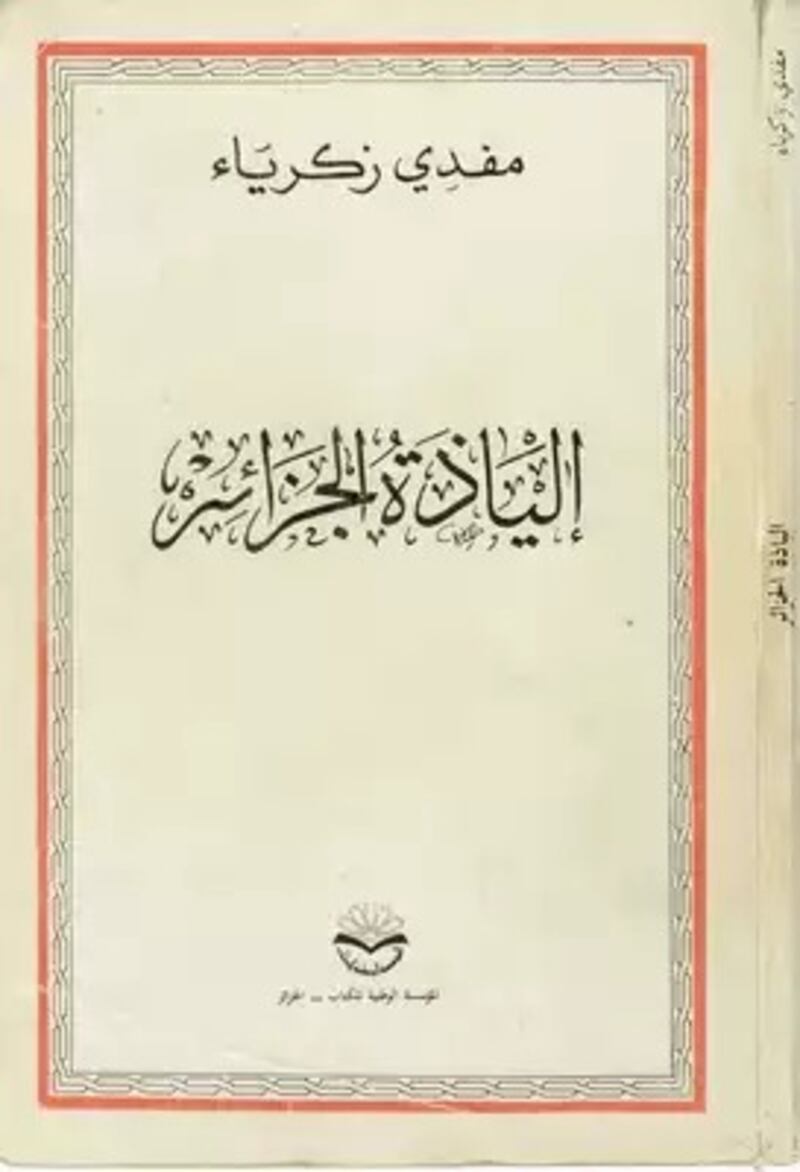 مفدِي زكريَاء
إليَاذَةُ الجَزَائر
المؤسسة الوطنية للكتاب — الجزائر
مفدي زكرياء
الياذة الجزائر